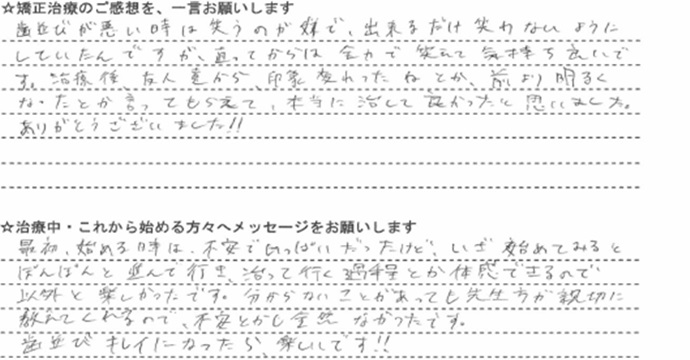 ☆矯正治療のご感想を、一言お願いします
歯並びが悪い時は笑うのが嫌で、出来るだけ笑わないように
していたんですが、直ってからは全力で笑えて気持ち良いで
す。治療後、友人達から、印象変わったねとか、前より明るく
なったとか言ってもらえて、本当に治して良かったと思いました。
ありがとうございました!!
☆治療中・これから始める方々へメッセージをお願いします
最初、始める時は、不安でいっぱいだったけど、いざ始めてみると
ぽんぽんと進んで行き、治って行く過程とか体感できるので
以外と楽しかったです。分からないことがあっても先生方が親切に
教えてくれるので、不安とかも全然なかったです。
歯並びキレイになったら、楽しいです!!